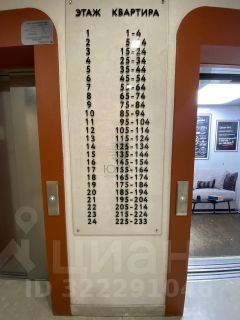 ЭТАЖ КВАРТИРА
1 1-4
2 5-14
3 15-24
4 25-34
5 35-44
6 45-54
7 55-64
8 65-74
9 75-84
10 85-94
11 95-104
12 105-114
13 115-124
14 125-134
15 135-144
16 145-154
17 155-164
18 165-174
19 175-184
20 185-194
21 195-204
22 205-214
23 215-224
24 225-233
циан
ID 322291046